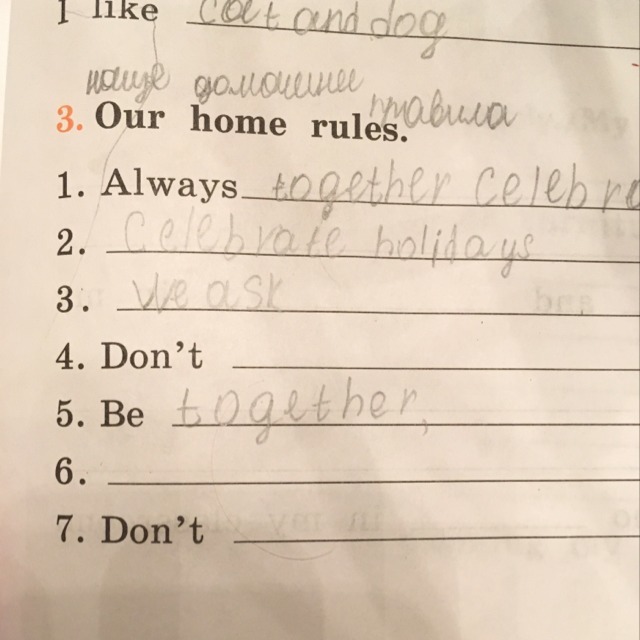 I like cat and dog
наще домашнее правила
3. Our home rules.
1. Always together celebra
2. Celebrate holidays
3. We ask
4. Don't
5. Be together,
6.
7. Don't